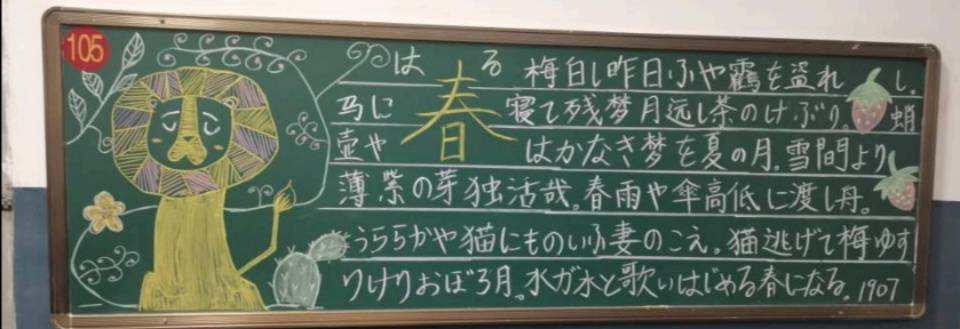 105
はる 春 梅白し昨日ふや靍を盗れし。
马に 寝て残梦月远し茶のけぶり。蛸
壷や はかなき梦を夏の月。雪間より
薄紫の芽独活哉。春雨や傘高低に渡し舟。
うららかや猫にものいふ妻のこえ。猫逃げて梅ゆす
りけりおぼろ月。水ガ水と歌いはじめる春になる。1907